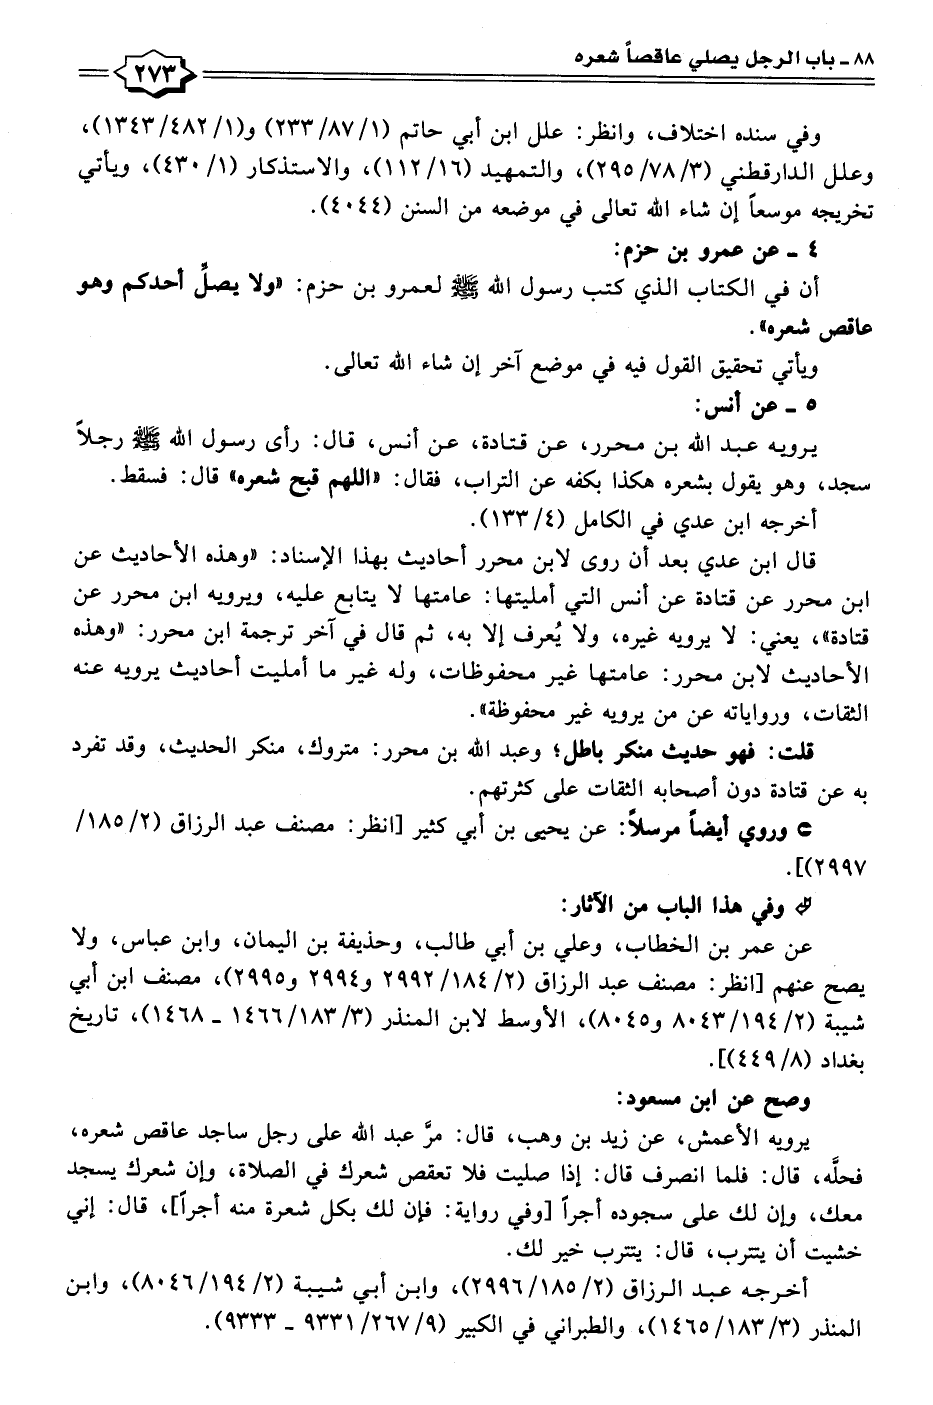 ٨٨ ـ باب الرجل يصلي عاقصاً شعره
٢٧٣
وفي سنده اختلاف، وانظر: علل ابن أبي حاتم (٢٣٣/٨٧/١) و(١٣٤٣/٤٨٢/١)،
وعلل الدارقطني (٢٩٥/٧٨/٣)، والتمهيد (١١٢/١٦)، والاستذكار (٤٣٠/١)، ويأتي
تخريجه موسعاً إن شاء الله تعالى في موضعه من السنن (٤٠٤٤).
٤ ـ عن عمرو بن حزم:
أن في الكتاب الذي كتب رسول الله ﷺ لعمرو بن حزم: «ولا يصلِّ أحدكم وهو
عاقص شعره».
ويأتي تحقيق القول فيه في موضع آخر إن شاء الله تعالى.
٥ ـ عن أنس:
يرويه عبد الله بن محرر، عن قتادة، عن أنس، قال: رأى رسول الله ﷺ رجلاً
سجد، وهو يقول بشعره هكذا بكفه عن التراب، فقال: «اللهم قبح شعره» قال: فسقط.
أخرجه ابن عدي في الكامل (١٣٣/٤).
قال ابن عدي بعد أن روى لابن محرر أحاديث بهذا الإسناد: «وهذه الأحاديث عن
ابن محرر عن قتادة عن أنس التي أمليتها: عامتها لا يتابع عليه، ويرويه ابن محرر عن
قتادة»، يعني: لا يرويه غيره، ولا يُعرف إلا به، ثم قال في آخر ترجمة ابن محرر: «وهذه
الأحاديث لابن محرر: عامتها غير محفوظات، وله غير ما أمليت أحاديث يرويه عنه
الثقات، ورواياته عن من يرويه غير محفوظة».
قلت: فهو حديث منكر باطل؛ وعبد الله بن محرر: متروك، منكر الحديث، وقد تفرد
به عن قتادة دون أصحابه الثقات على كثرتهم.
وروي أيضاً مرسلاً: عن يحيى بن أبي كثير [انظر: مصنف عبد الرزاق (١٨٥/٢/
٢٩٩٧)].
وفي هذا الباب من الآثار:
عن عمر بن الخطاب، وعلي بن أبي طالب، وحذيفة بن اليمان، وابن عباس، ولا
يصح عنهم [انظر: مصنف عبد الرزاق (٢٩٩٢/١٨٤/٢ و٢٩٩٤ و٢٩٩٥)، مصنف ابن أبي
شيبة (٨٠٤٣/١٩٤/٢ و٨٠٤٥)، الأوسط لابن المنذر (١٤٦٦/١٨٣/٣ ـ ١٤٦٨)، تاريخ
بغداد (٤٤٩/٨)].
وصح عن ابن مسعود:
يرويه الأعمش، عن زيد بن وهب، قال: مرَّ عبد الله على رجل ساجد عاقص شعره،
فحلَّه، قال: فلما انصرف قال: إذا صليت فلا تعقص شعرك في الصلاة، وإن شعرك يسجد
معك، وإن لك على سجوده أجراً [وفي رواية: فإن لك بكل شعرة منه أجراً]، قال: إني
خشيت أن يتترب، قال: يتترب خير لك.
أخرجه عبد الرزاق (٢٩٩٦/١٨٥/٢)، وابن أبي شيبة (٨٠٤٦/١٩٤/٢)، وابن
المنذر (١٤٦٥/١٨٣/٣)، والطبراني في الكبير (٩٣٣١/٢٦٧/٩ ـ ٩٣٣٣).